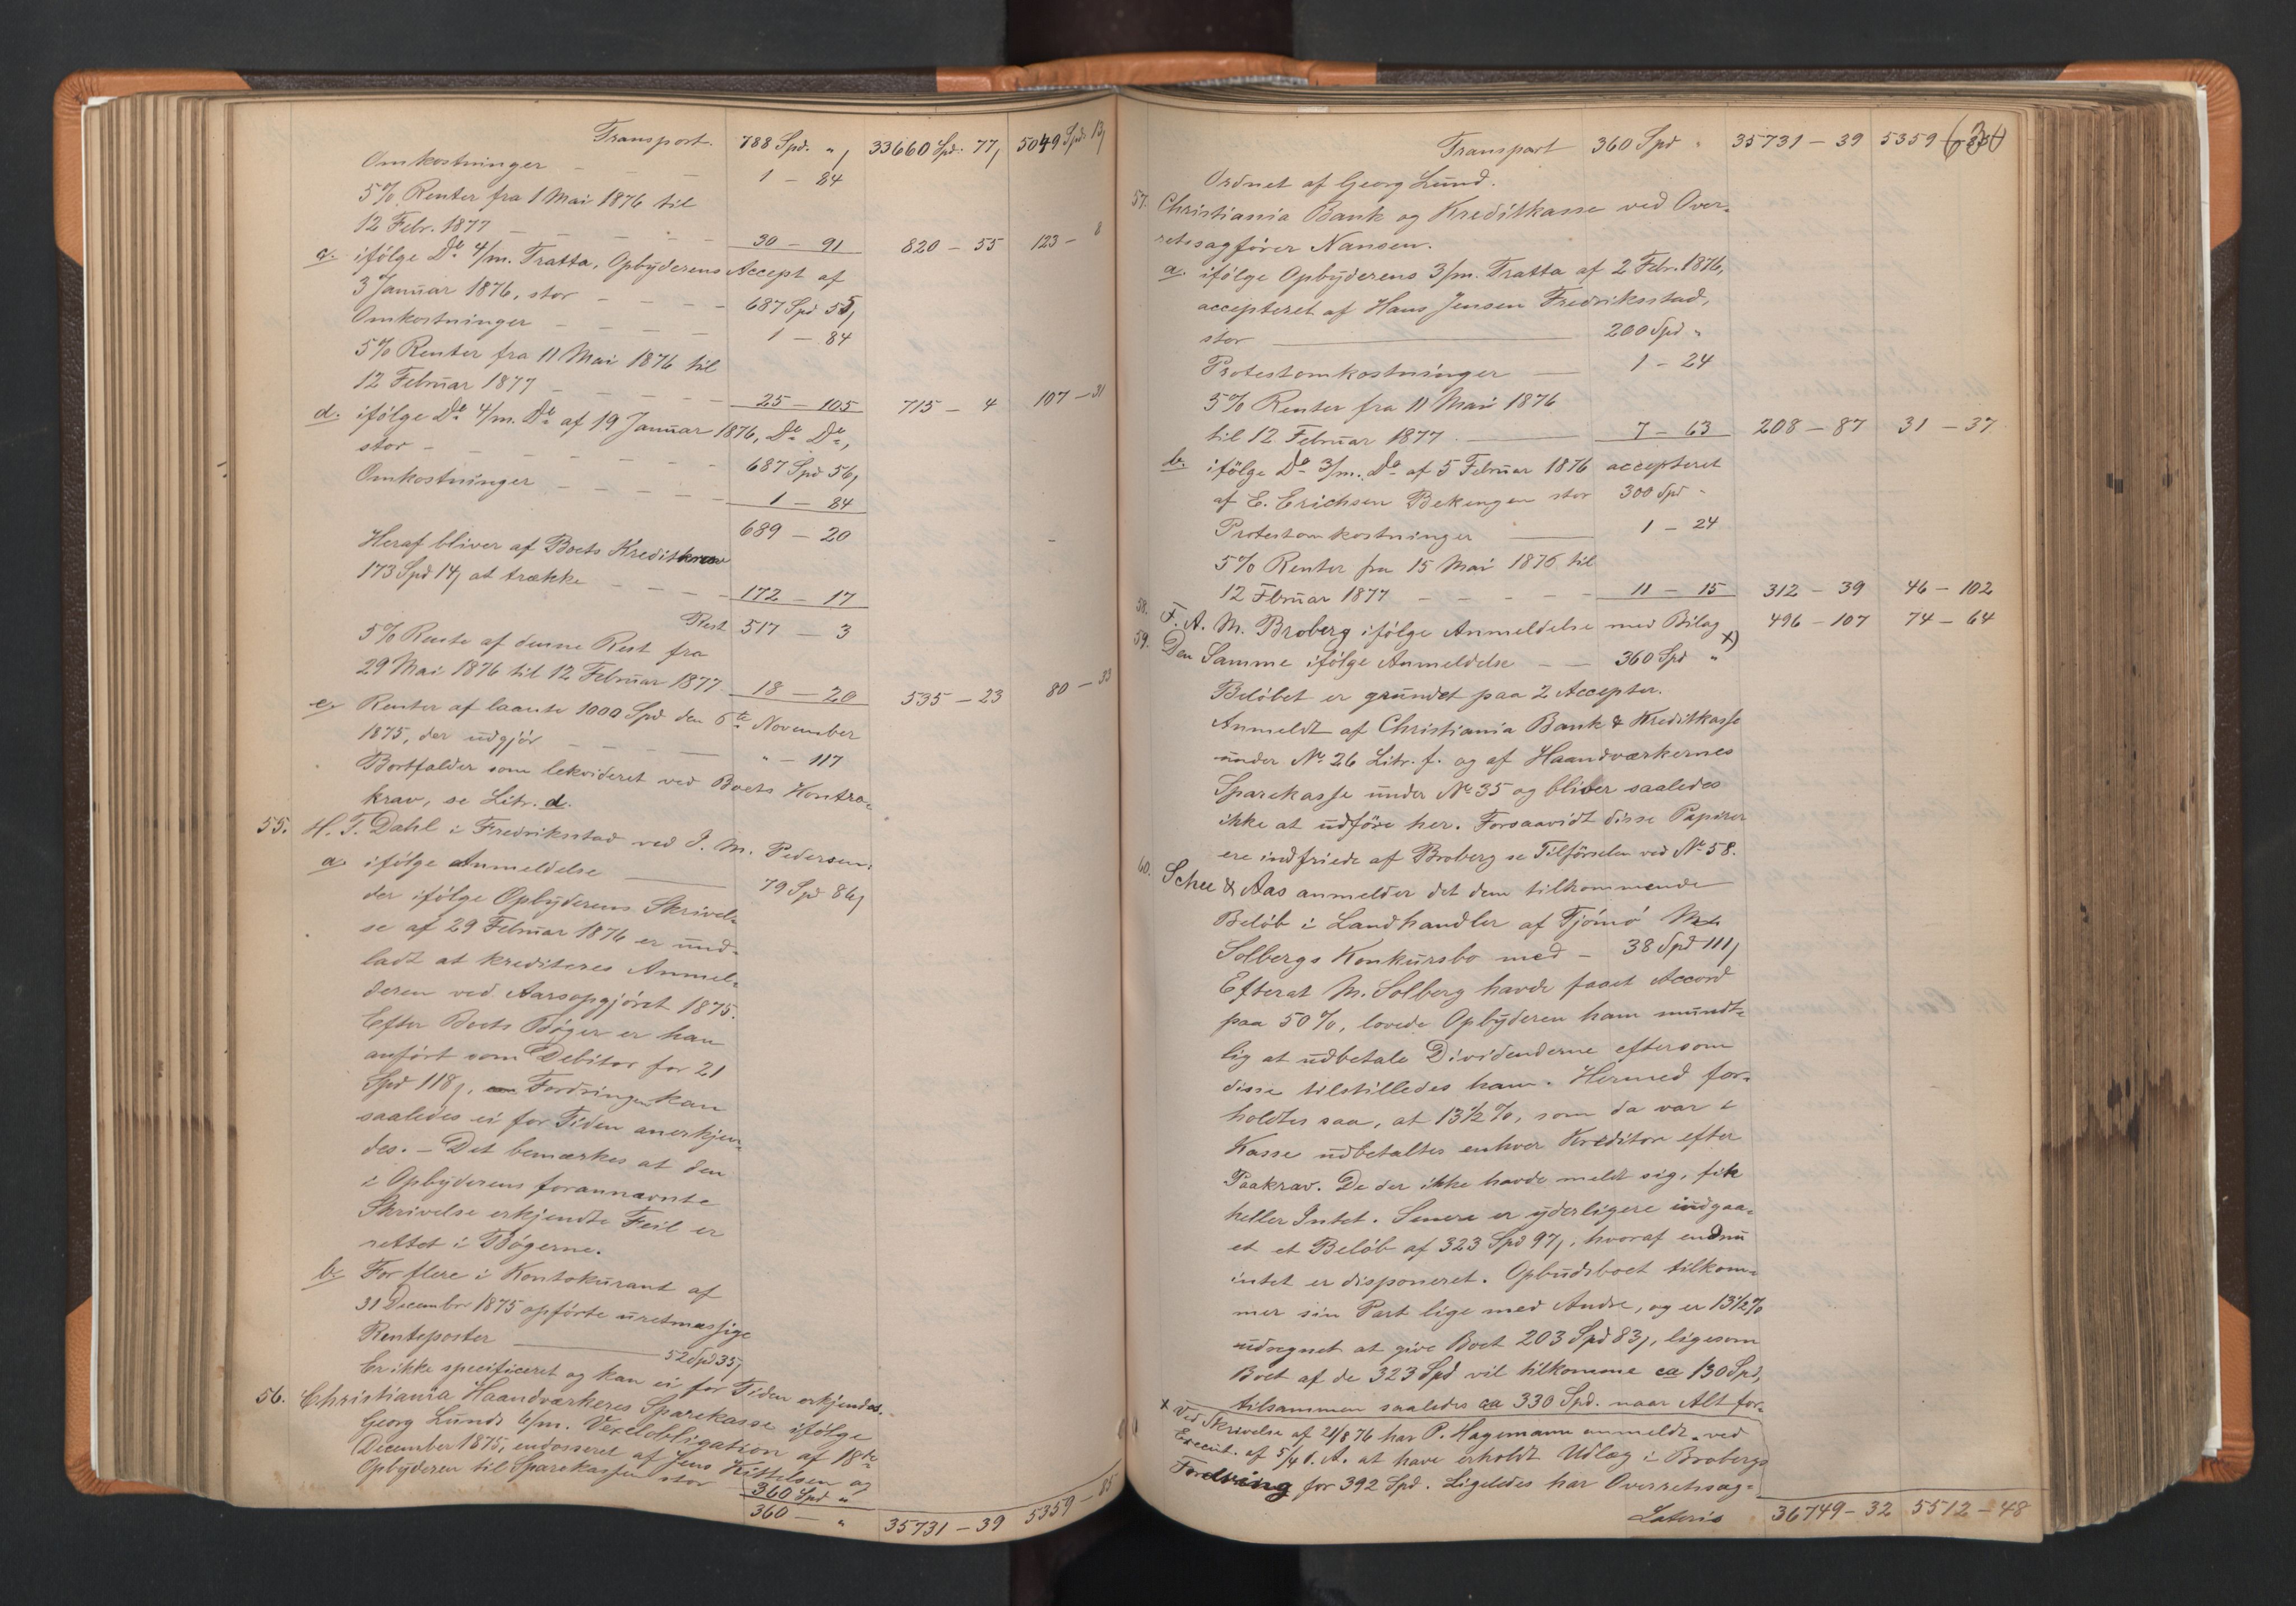 Transport. 788 Spd. " 33660 Spd. 77, 5049 Spd. 13,
Omkostninger - - - 1 - 84
5% Renter fra 1 Mai 1876 til
12 Febr. 1877 - - - - 30 - 91 820 - 55 123 - 8
c. ifölge Do 4/m. Tratta, Opbyderens Accept af
3 Januar 1876, stor - - - - 687 Spd 55,
Omkostninger - - - - 1 - 84
5% Renter fra 11 Mai 1876 til
12 Februar 1877 - - - - 25 - 105 715 - 4 107 - 31
d. ifölge Do 4/m. Do af 19 Januar 1876, Do Do,
stor - - - - - - 687 Spd 56,
Omkostninger - - - - - 1 - 84
689 - 20
Heraf bliver af Boets Kreditkrav
173 Spd 14, at trække - - - - 172 - 17
Rest 517 - 3
5% Rente af denne Rest fra
29 Mai 1876 til 12 Februar 1877 18 - 20 535 - 23 80 - 33
e. Renter af laante 1000 Spd den 6te November
1875, der udgjör - - - " - 117
Bortfalder som lekvideret ved Boets Kontra-
krav, se Litr. d.
55. H. T. Dahl i Fredriksstad ved J. M. Pedersen:
a. ifölge Anmeldelse - 79 Spd 86,
der ifölge Opbyderens Skrivel-
se af 29 Februar 1876 er und-
ladt at krediteres Anmel-
deren ved Aarsopgjöret 1875.
Efter Boets Böger er han
anfört som Debitor for 21
Spd 118,. Fordringen kan
saaledes ei for Tiden anerkjen-
des. - Det bemærkes at den
i Opbyderens forannævnte
Skrivelse erkjendte Feil er
rettet i Bögerne.
b. For flere i Kontokurant af
31 December 1875 opförte uretmæssige
Renteposter - 52 Spd 35,
Er ikke specificeret og kan ei for Tiden erkjendes.
56. Christiania Haandværkeres Sparekasse ifölge
Georg Lunds 6/m. Vexelobligation af 18de
December 1875, endosseret af Jens Kittelsen og
Opbyderen til Sparekassen stor 360 Spd "
360 - " 35731 - 39 5359 - 85
Transport 360 Spd " 35731 - 39 5359 - 85
Ordnet af Georg Lund.
57. Christiania Bank og Kreditkasse ved Over-
retssagförer Nansen.
a. ifölge Opbyderens 3/m. Tratta af 2 Febr. 1876,
accepteret af Hans Jensen Fredriksstad,
stor - 200 Spd "
Protestomkostninger - 1 - 24
5% Renter fra 11 Mai 1876
til 12 Februar 1877. - 7 - 63 208 - 87 31 - 37
b. ifölge Do 3/m. Do af 5 Februar 1876 accepteret
af E. Erichsen Bekengen stor 300 Spd -
Protestomkostninger - 1 - 24
5% Renter fra 15 Mai 1876 til
12 Fbruar 1877 - - - - - 11 - 15 312 - 39 46 - 102
58. F. A. M. Broberg ifölge Anmeldelse med Bilag 496 - 107 74 - 64
59. Den Samme ifölge Anmeldelse - - 360 Spd " x)
Belöbet er grundet paa 2 Accepter.
Anmeldt af Christiania Bank & Kreditkasse
under No 26 Litr. f. og af Haandværkernes
Sparekasse under No 35 og bliver saaledes
ikke at udföre her. Forsaavidt disse Papirer
ere indfriede af Broberg se Tilförselen ved No 58.
60. Schee & Aas anmelder det dem tilkommende
Belöb i Landhandler af Tjömö M.
Solbergs Konkursbo med - 38 Spd 111,
Efterat M. Solberg havde faaet Accord
paa 50%, lovede Opbyderen ham mundt-
lig at udbetale Dividenderne eftersom
disse tilstilledes ham. Hermed for-
holdtes saa, at 13½%, som da var i
Kasse udbetaltes enhver Kreditor efter
Paakrav. De der ikke havde meldt sig, fik
heller Intet. Senere er yderligere indgaa-
et et Belöb af 323 Spd 97,, hvoraf endnu
intet er disponeret. Opbudsboet tilkom-
mer sin Part lige med Andre, og er 13½%
udregnet at give Boet 203 Spd 83,, ligesom
Boet af de 323 Spd vil tilkomme ca 130 Spd,
tilsammen saaledes ca 330 Spd. naar Alt for-
x Ved Skrivelse af 21/8 76 har P. Hagemann anmeldt ved
Execut. af 5/4 f. A. at have erholdt Udlæg i Brobergs
Fordring for 392 Spd. Ligeledes har Overretssag-
Lateris 36749 - 32 5512 - 48